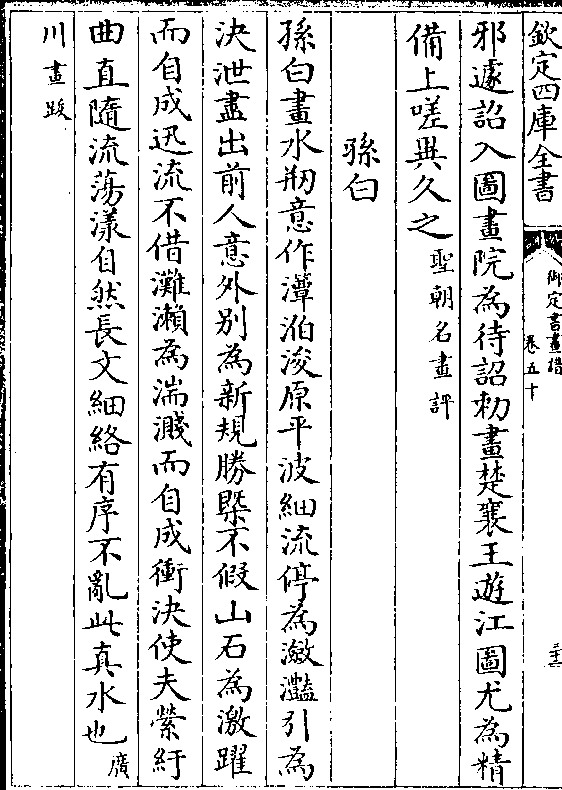 欽定四庫全書
御定書畫譜
卷五十
三十三
邪遽詔入圖畫院為待詔勅畫楚襄王遊江圖尤為精
備上嗟異久之聖朝名畫評
孫白
孫白畫水刱意作潭㳍浚原平波細流停為瀲灧引為
決泄盡出前人意外别為新規勝槩不假山石為激躍
而自成迅流不借灘瀨為湍濺而自成衝決使夫縈紆
曲直隨流蕩漾自然長文細絡有序不亂此真水也廣
川畫跋